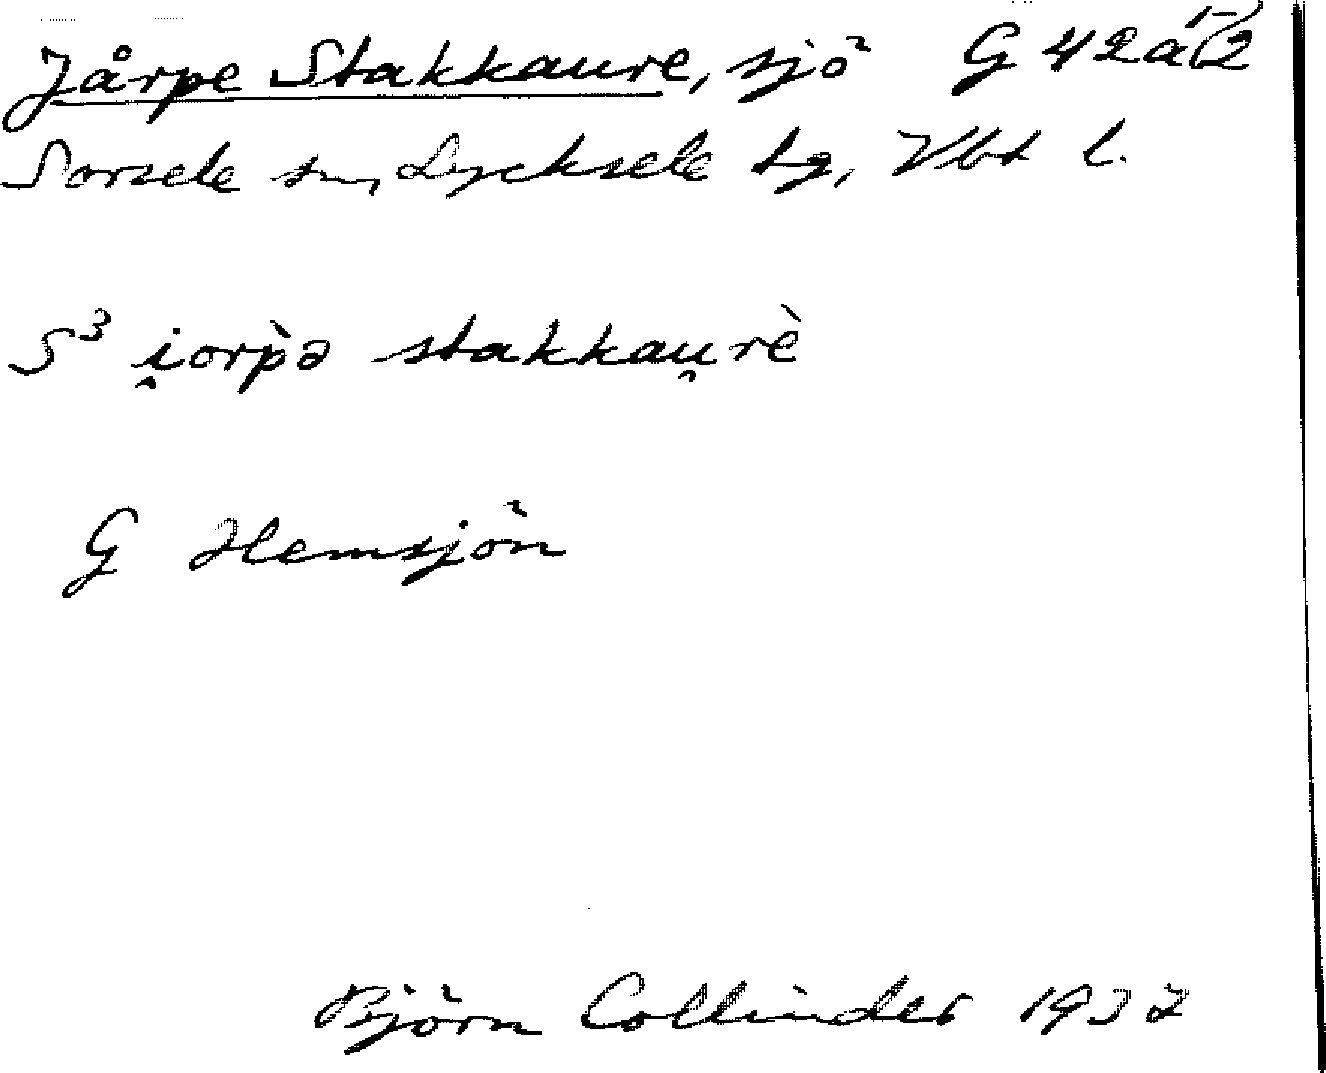 Jårpe Stakkaure, sjö G 42 a 1-2
Sorsele sn, Lycksele tg, Vbt l.
S³ i̯orp̀ə stakkau̯rè
G Hemsjön
Björn Collinder 1937